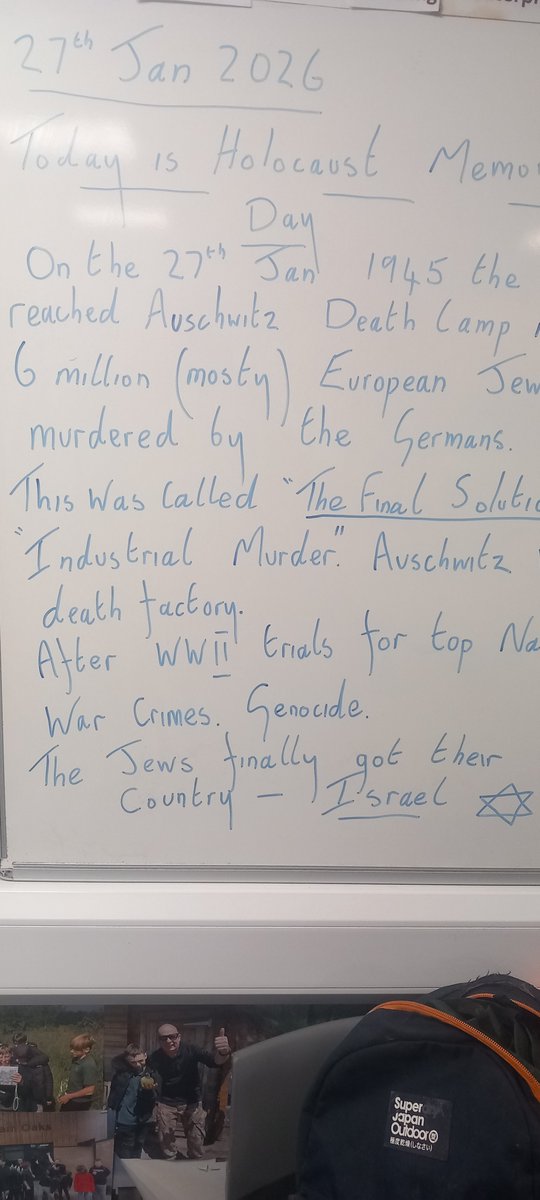 27th Jan 2026
Today is Holocaust Memo
Day
On the 27th Jan 1945 the
reached Auschwitz Death Camp
6 million (mosty) European Jew
murdered by the Germans.
This was called "The Final Soluti
"Industrial Murder." Auschwitz
death factory.
After WWII trials for top Na
War Crimes. Genocide.
The Jews finally got their
Country — Israel
Oaks
Super
Japan
Outdoor
極度乾燥(しなさい)